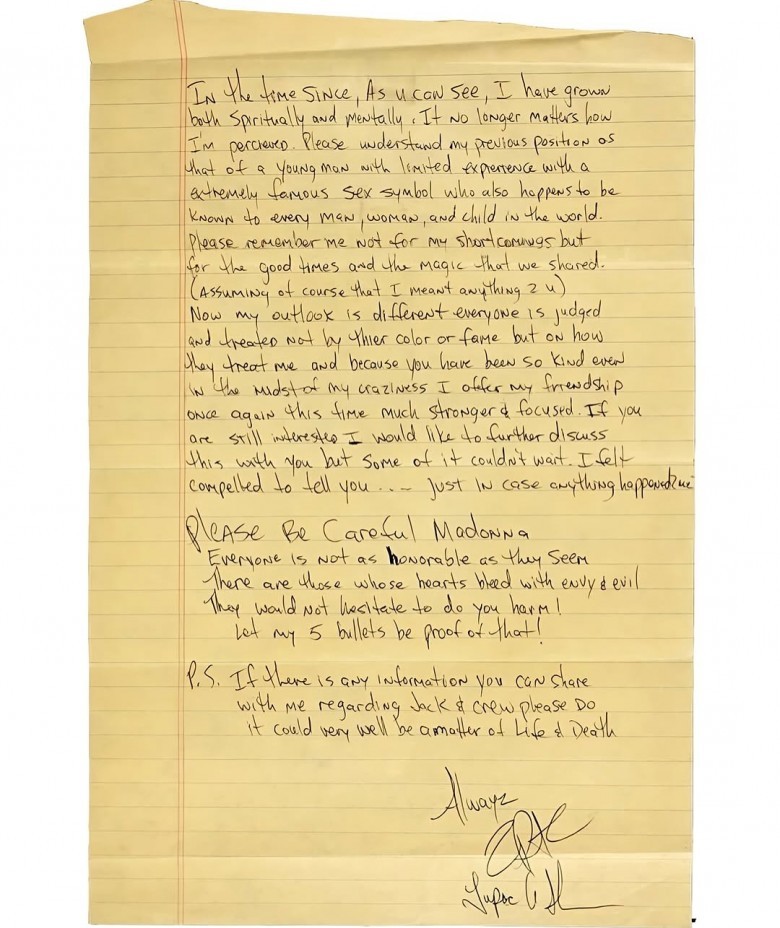 In the time since, As u can see, I have grown
both spiritually and mentally. It no longer matters how
I'm percieved. Please understand my previous position as
that of a young man with limited experience with a
extremely famous sex symbol who also happens to be
known to every man, woman, and child in the world.
Please remember me not for my shortcomings but
for the good times and the magic that we shared.
(Assuming of course that I meant anything 2 u)
Now my outlook is different everyone is judged
and treated not by thier color or fame but on how
they treat me and because you have been so kind even
in the midst of my craziness I offer my friendship
once again this time much stronger & focused. If you
are still interested I would like to further discuss
this with you but some of it couldn't wait. I felt
compelled to tell you .... just in case anything happened 2 me
Please Be Careful Madonna
Everyone is not as honorable as they seem
There are those whose hearts bleed with envy & evil
They would not hesitate to do you harm!
Let my 5 bullets be proof of that!
P.S. If there is any information you can share
with me regarding Jack & crew please Do
it could very well be a matter of Life & Death
Alwayz
Tupac A S